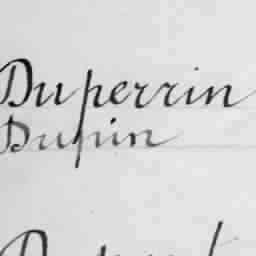 Duperrin
Dupin